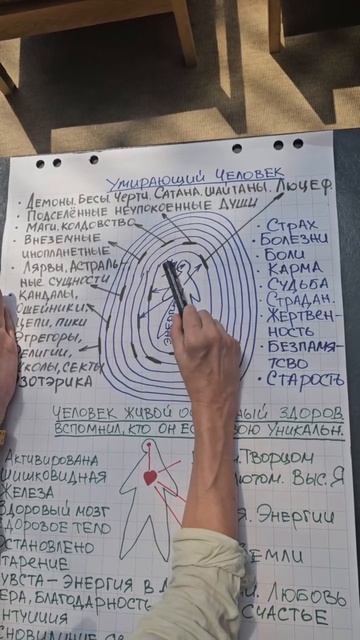 Умирающий Человек
· Демоны. Бесы. Черти. Сатана. Шайтаны. Люцеф.
Подселённые неупокоенные души
Маги. колдовство
Внеземные
инопланетные
Лярвы, Астраль-
ные сущности
Кандалы,
Ошейники,
Цепи, пики
Эгрегоры,
Религии,
Школы, секты
Эзотерика
· Страх
· Болезни
· Боли
· Карма
· Судьба
· Страдан.
· Жертвен-
ность
· Безпамя-
тсво
· Старость
Человек живой здоров
вспомнил, кто он есть свою уникальн.
Активирована
шишковидная
железа
здоровый мозг
здоровое тело
остановлено
старение
чувства - энергия в
вера, благодарность
интуиция
Творцом
Выс. Я
Энергии
Земли
Любовь
счастье